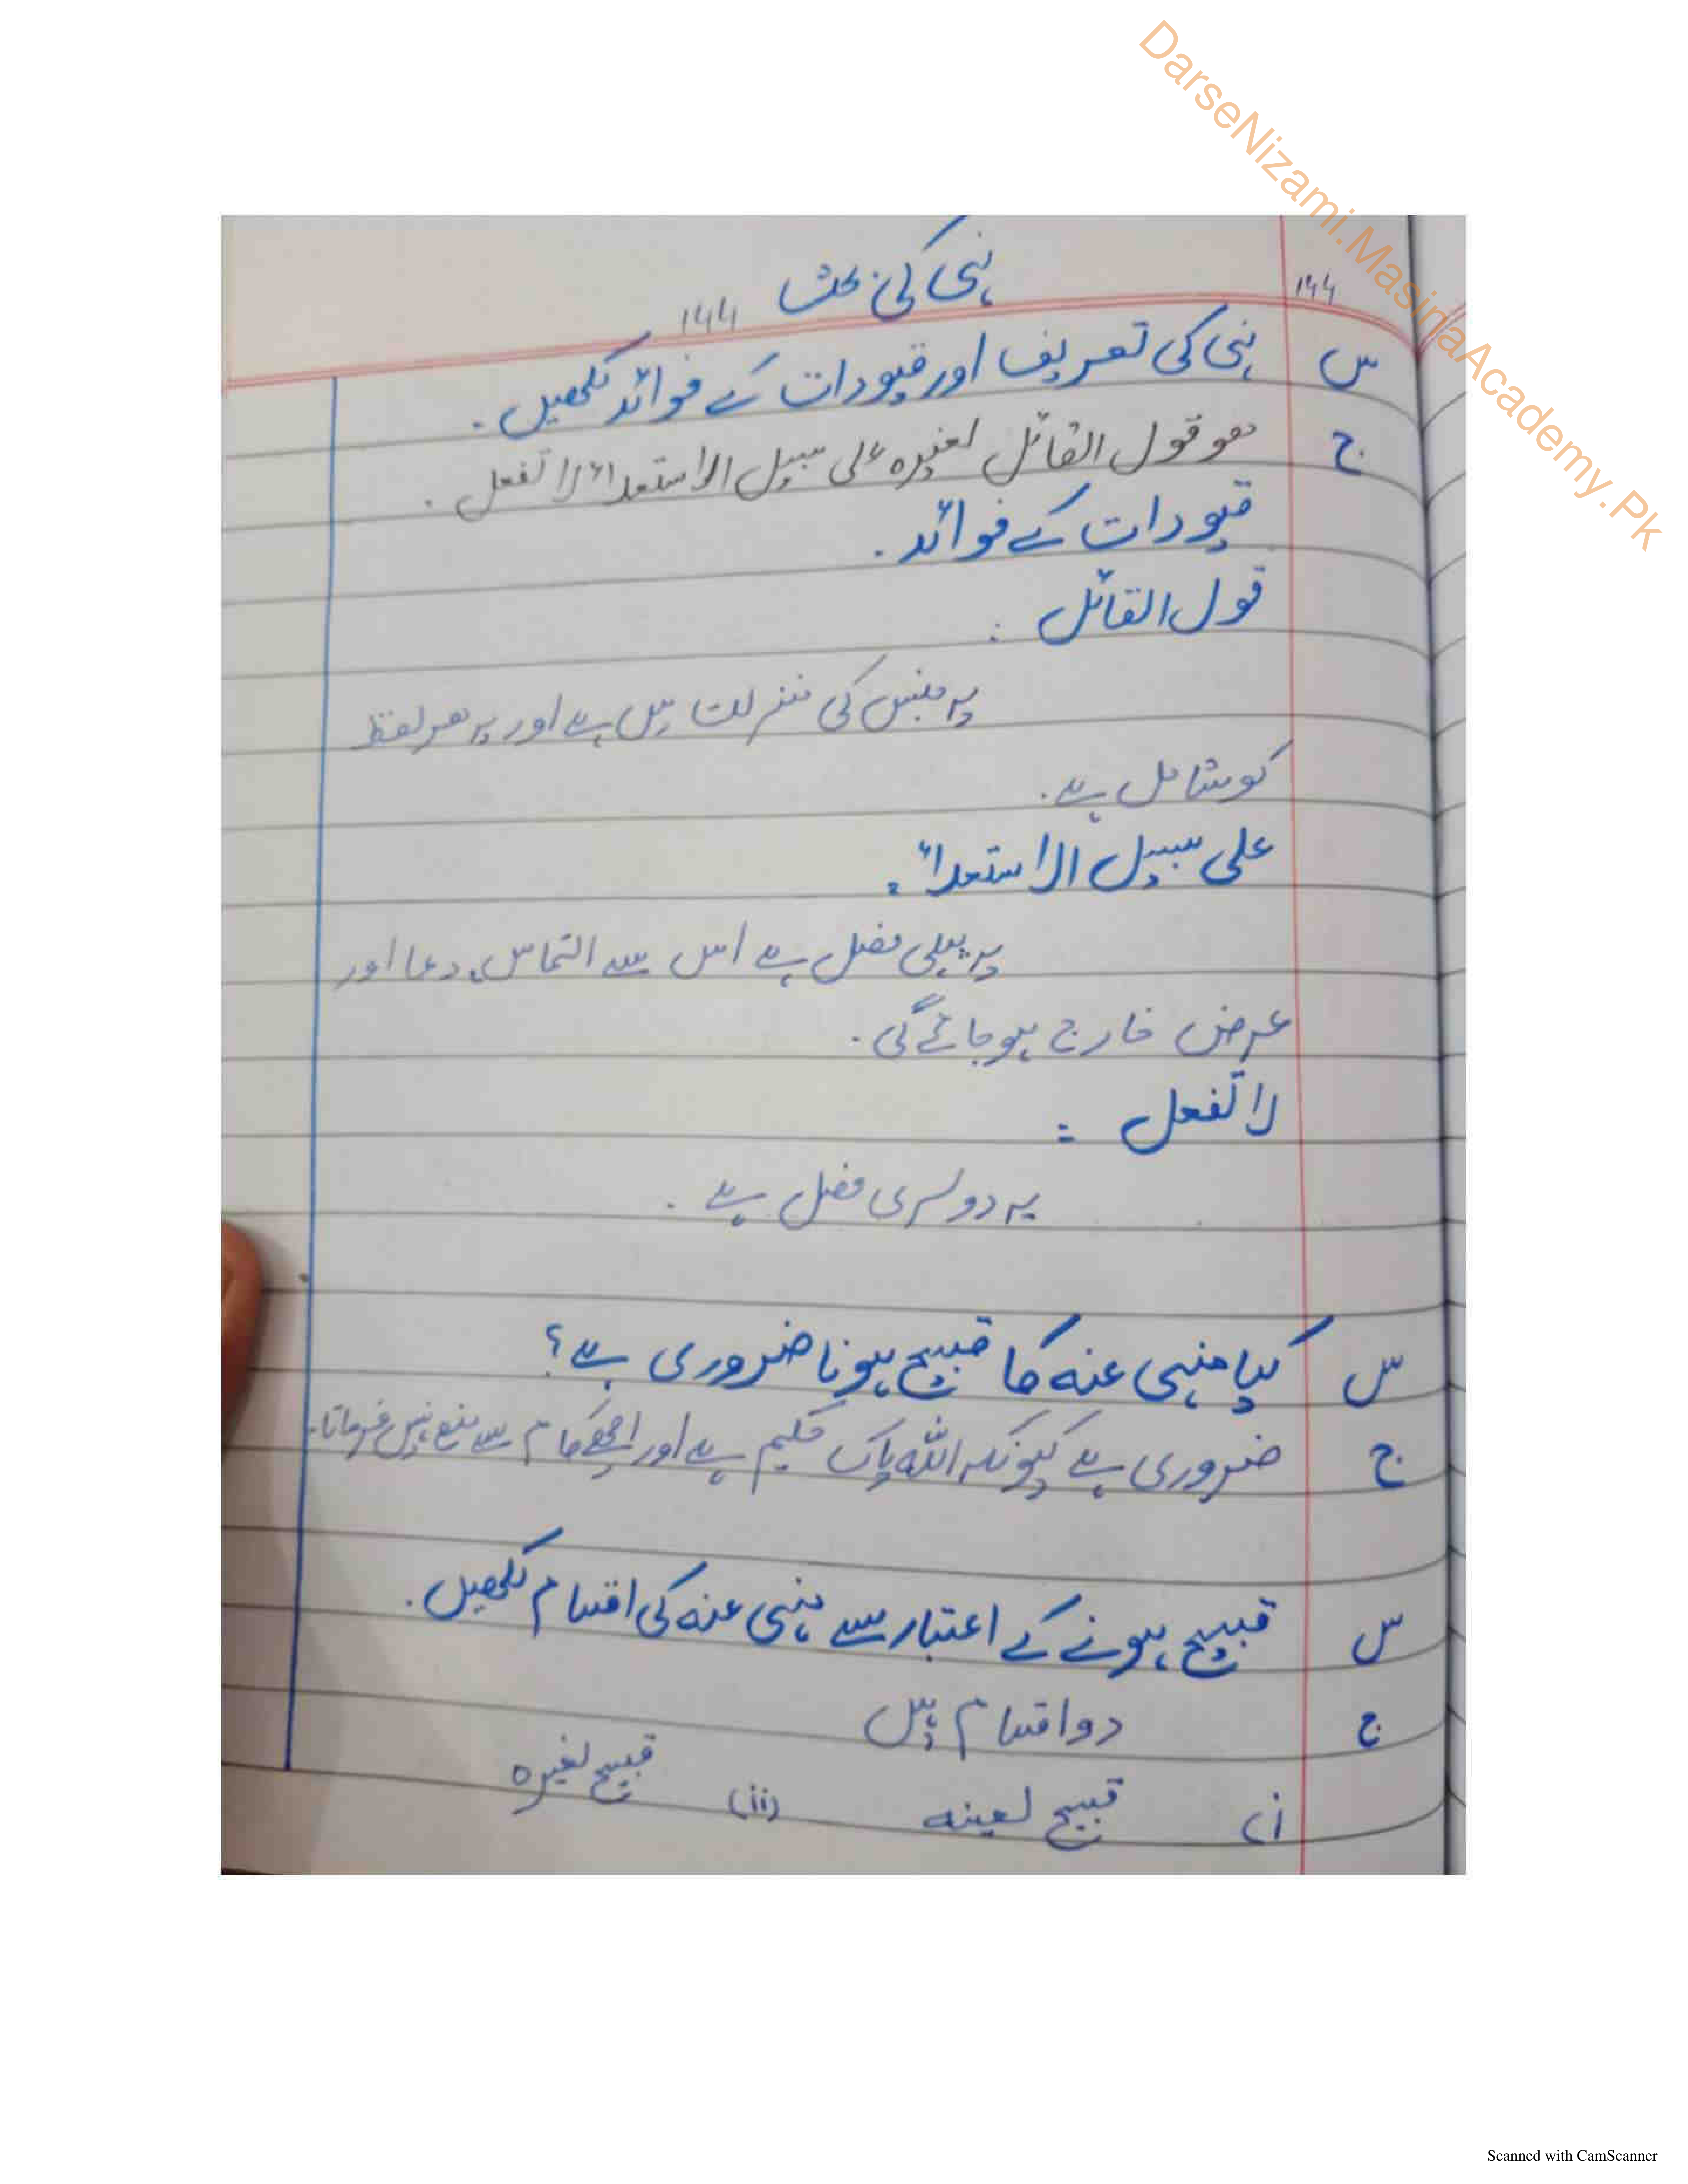 DarseNizami.MasinaAcademy.Pk
نہی کی بحث
۱۴۴
۱۴۴
س نہی کی تعریف اور قیودات کے فوائد لکھیں۔
ج ھو قول القائل لغیرہ علی سبیل الاستعلاء لا تفعل۔
قیودات کے فوائد۔
قول القائل :
یہ جنس کی منزلت میں ہے اور یہ ھر لفظ
کو شامل ہے۔
علی سبیل الاستعلاء :
یہ پہلی فصل ہے اس سے التماس، دعا اور
عرض خارج ہو جائے گی۔
لا تفعل :
یہ دوسری فصل ہے۔
س کیا منہی عنہ کا قبیح ہونا ضروری ہے؟
ج ضروری ہے کیونکہ اللہ پاک حکیم ہے اور اچھے کام سے منع نہیں فرماتا۔
س قبیح ہونے کے اعتبار سے منہی عنہ کی اقسام لکھیں۔
ج دو اقسام ہیں
(i قبیح لعینہ (ii) قبیح لغیرہ
Scanned with CamScanner